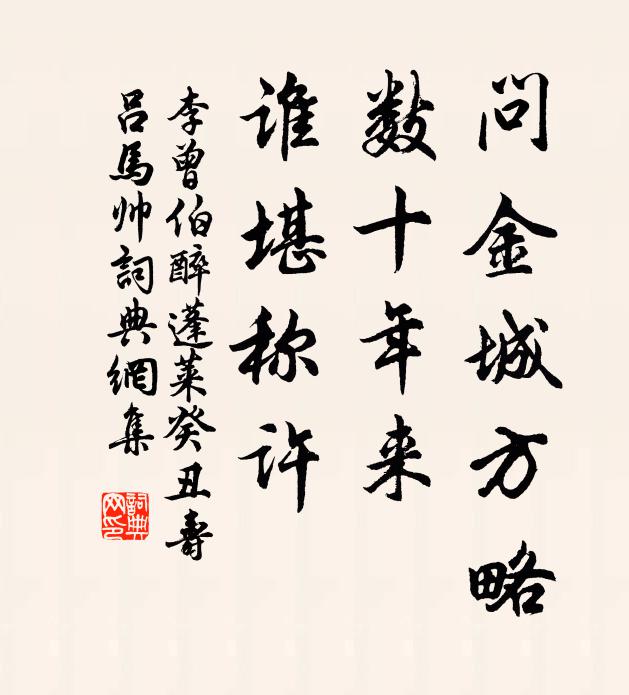 问金城方略
数十年来
谁堪称许
李曾伯醉蓬莱癸丑寿
吕马帅词典網集
詞典网印